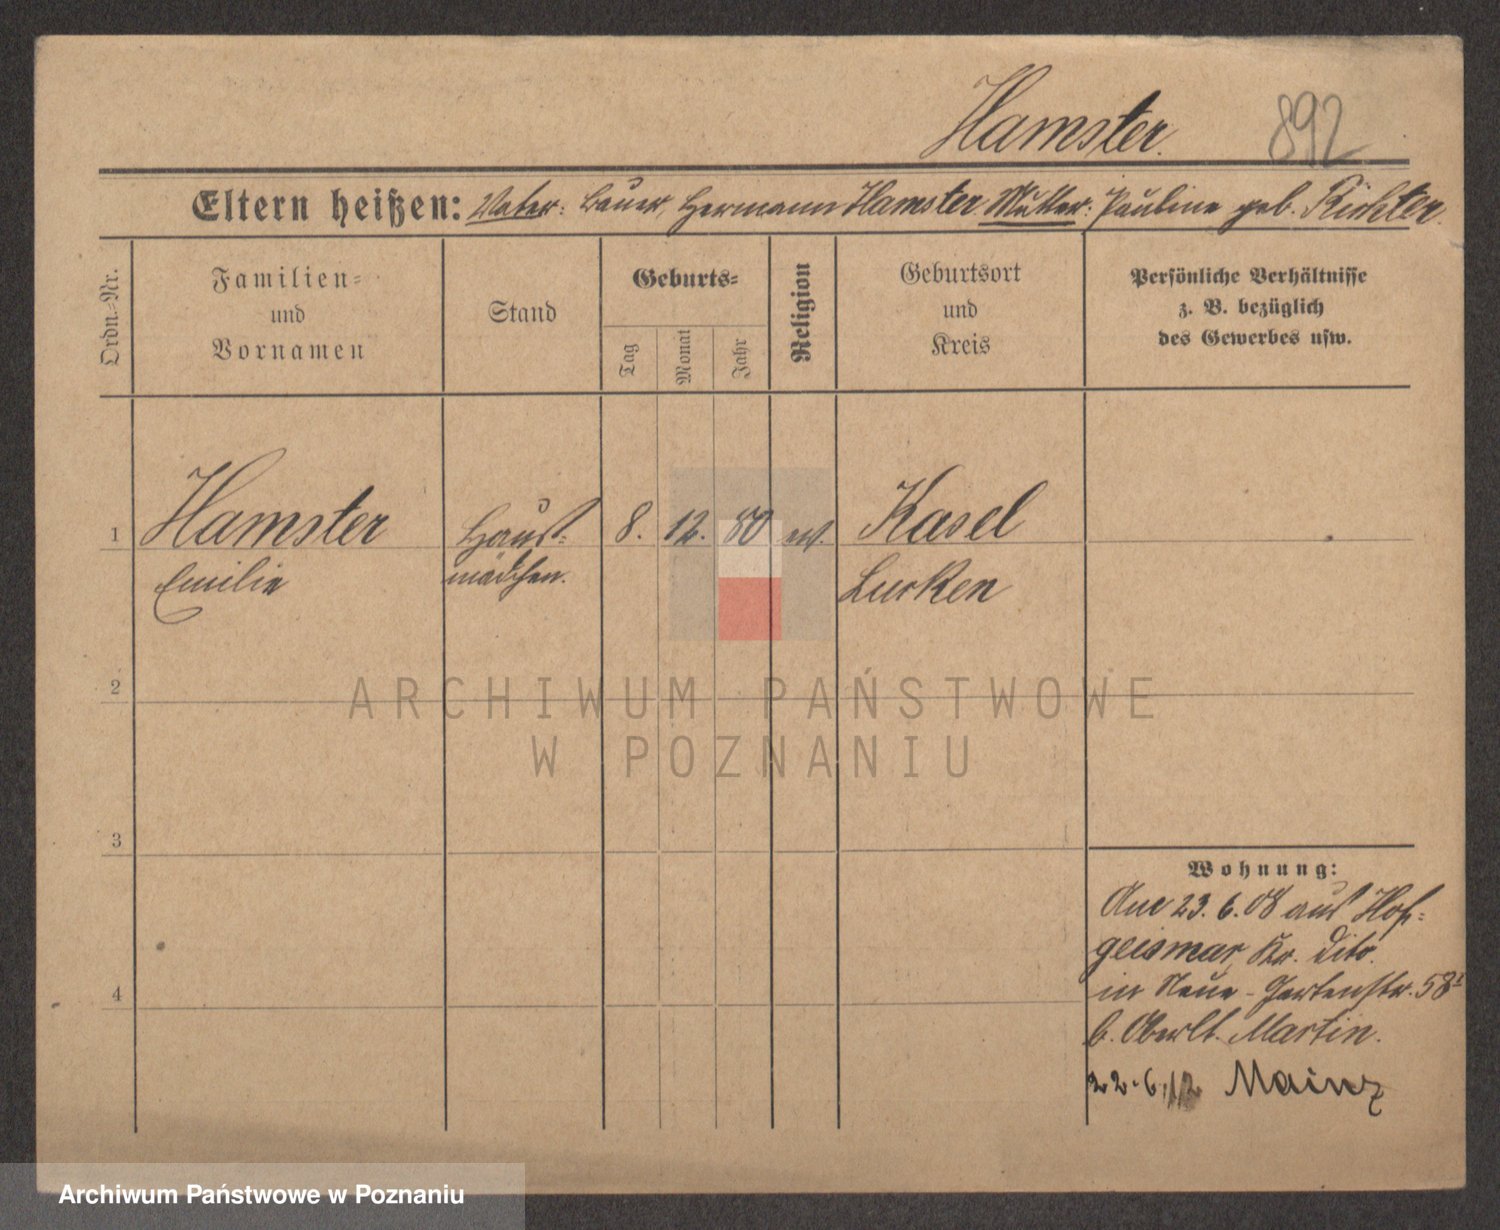 Hamster. 892
Eltern heißen: Vater: Bauer, Hermann Hamster Mutter: Pauline geb. Richter.
Ordn.-Nr.
Familien-
und
Vornamen
Stand
Geburts-
Tag
Monat
Jahr
Religion
Geburtsort
und
Kreis
Persönliche Verhältnisse
z. B. bezüglich
des Gewerbes usw.
1 Hamster Haus- 8. 12. 80 ev. Kasel
Emilie mädchen. Lucken
2
ARCHIWUM PAŃSTWOWE
W POZNANIU
3
Wohnung:
23. 6. 08 aus Hof-
geismar, Kr. dito.
4
in Neue-Gartenstr. 58
b. Oberlt. Martin.
22.6.12 Mainz
Archiwum Państwowe w Poznaniu